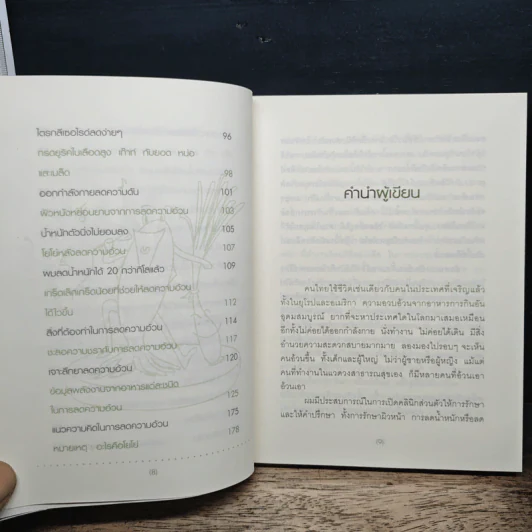 ไตรกลีเซอไรด์ลดง่ายๆ 96
กรดยูริคในเลือดสูง เก๊าท์ กับยอด หน่อ
และเมล็ด 98
ออกกำลังกายลดความดัน 101
ผิวหนังเหี่ยวย่นยานจากการลดความอ้วน 103
น้ำหนักตัวนิ่งไม่ยอมลง 105
โยโย่หลังลดความอ้วน 107
ผมลดน้ำหนักได้ 20 กว่ากิโลแล้ว 109
เกร็ดเล็กเกร็ดน้อยที่ช่วยให้ลดความอ้วน
ได้ไวขึ้น 112
สิ่งที่ต้องทำในการลดความอ้วน 114
ชะลอความชรากับการลดความอ้วน 117
เจาะลึกยาลดความอ้วน 120
ข้อมูลพลังงานจากอาหารแต่ละชนิด
ในการลดความอ้วน 125
แนวความคิดในการลดความอ้วน 175
หมายเหตุ : อะไรคือโยโย่ 178
คำนำผู้เขียน
คนไทยใช้ชีวิตเช่นเดียวกับคนในประเทศที่เจริญแล้ว
ทั้งในยุโรปและอเมริกา ความอวบอ้วนจากอาหารการกินอัน
อุดมสมบูรณ์ ยากที่จะหาประเทศใดในโลกมาเสมอเหมือน
อีกทั้งไม่ค่อยได้ออกกำลังกาย นั่งทำงาน ไม่ค่อยได้เดิน มีสิ่ง
อำนวยความสะดวกสบายมากมาย ลองมองไปรอบๆ จะเห็น
คนอ้วนขึ้น ทั้งเด็กและผู้ใหญ่ ไม่ว่าผู้ชายหรือผู้หญิง แม้แต่
คนที่ทำงานในแวดวงสาธารณสุขเอง ก็มีหลายคนที่อ้วนเอา
อ้วนเอา
ผมมีประสบการณ์ในการเปิดคลินิกส่วนตัวให้การรักษา
และให้คำปรึกษา ทั้งการรักษาผิวหน้า การลดน้ำหนักหรือลด